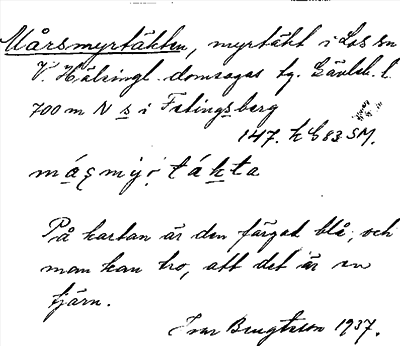 Mårsmyrtäkten, myrtäkt i Los sn
V. Hälsingl. domsagas tg. Gävleb. l.
700 m N s i Fetingsberg
147. h C 83 SM.
má̱ʂmýr̩tä́kta
På kartan är den färgad blå, och
man kan tro, att det är en
tjärn.
Ivar Bengtsson 1937.